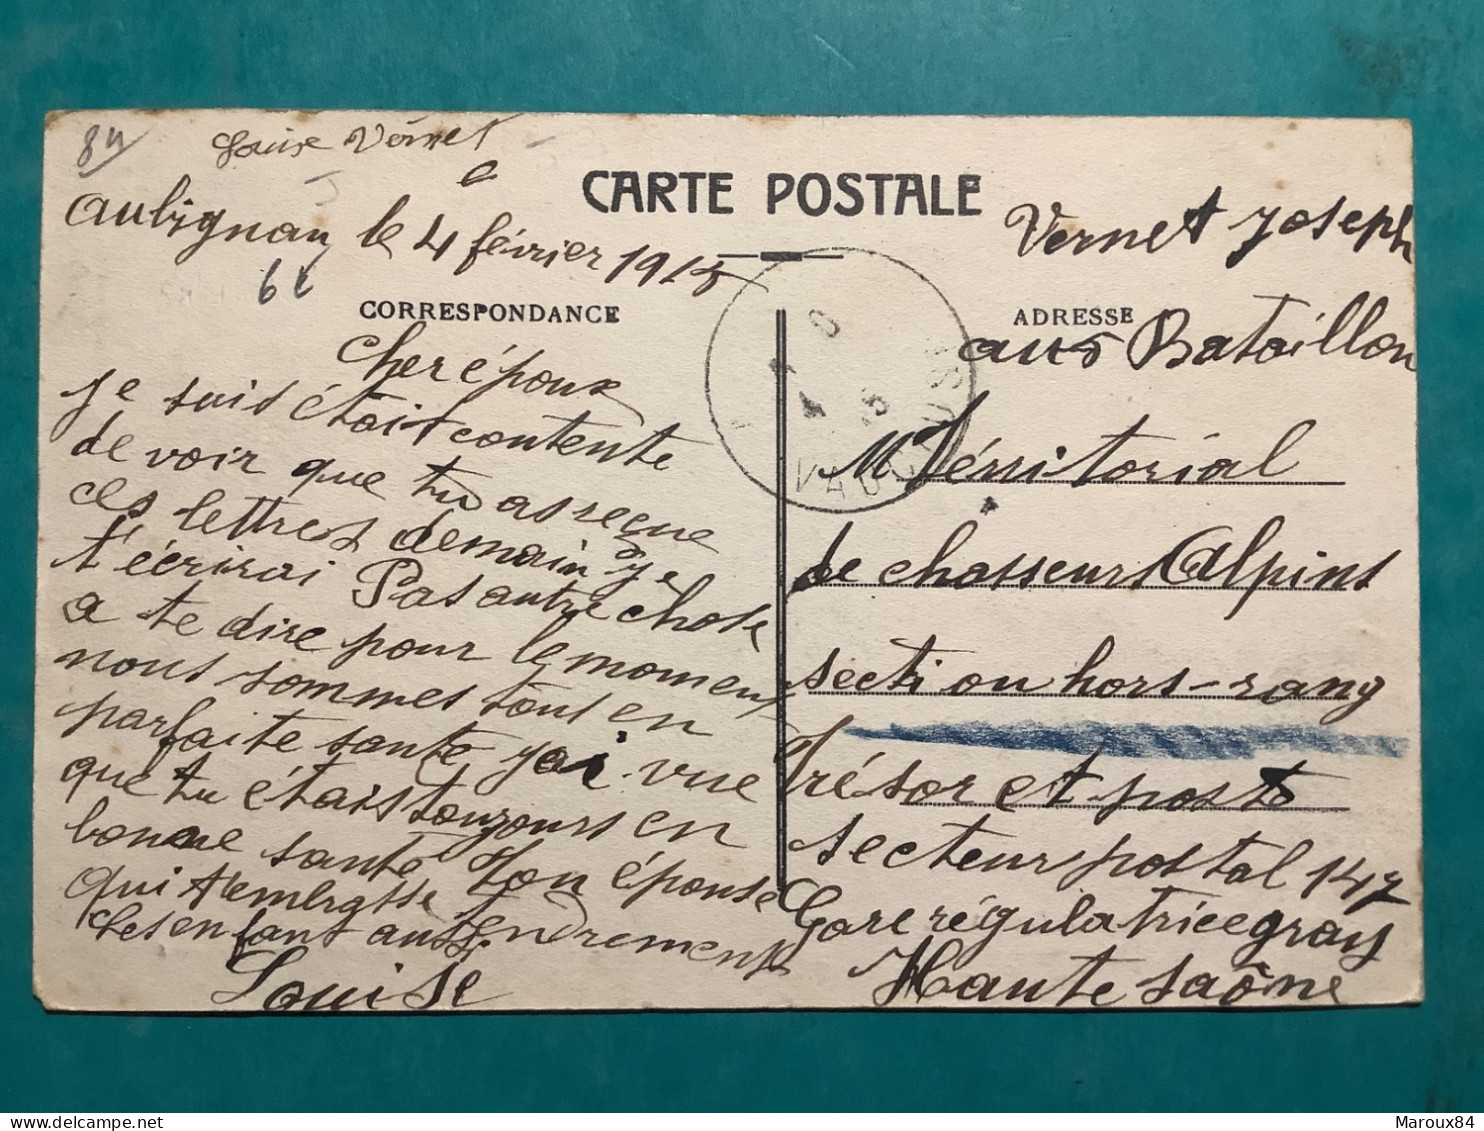 84
Louise Vernet
CARTE POSTALE
Aubignan le 4 février 1915
CORRESPONDANCE
Cher époux
je suis étais contente
de voir que tu as reçue
ces lettres demain je
t'écrirai Pas autre chose
a te dire pour le moment
nous sommes tous en
parfaite santé j'ai vue
que tu étais toujours en
bonne santé Ton épouse
qui t'embrasse tendrement
les enfant aussi
Louise
Vernet Joseph
ADRESSE
au 5 Bataillon
Térritorial
de chasseurs Alpins
section hors-rang
Trésor et poste
secteur postal 147
Gare régulatrice gray
Haute saône
VAUCLUSE
Maroux84